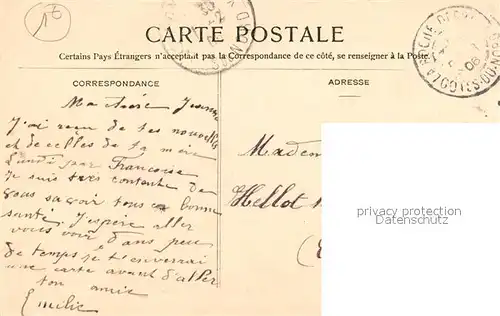 1 F
CARTE POSTALE
Certains Pays Étrangers n'acceptant pas la Correspondance de ce côté, se renseigner à la Poste.
CORRESPONDANCE
ADRESSE
Ma chère
J'ai reçu de tes nouvelles
et de celles de ta mère
Lundi par Françoise
Je suis très contente de
vous savoir tous en bonne
santé. J'espère aller
vous voir dans peu
de temps je t'enverrai
une carte avant d'aller
ton amie
Emilie
Madem
Hellot
privacy protection
www.ansichtskartenversand.com